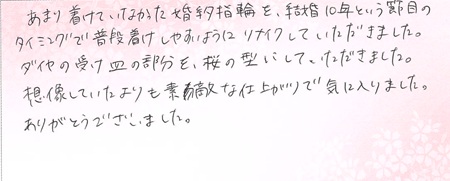 あまり着けていなかった婚約指輪を、結婚10年という節目の
タイミングで普段着けしやすいようにリメイクしていただきました。
ダイヤの受け皿の部分を、桜の型にしていただきました。
想像していたよりも素敵な仕上がりで気に入りました。
ありがとうございました。